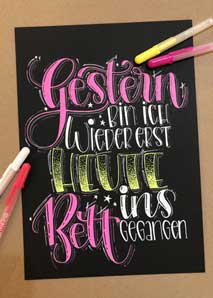 Gestern
BIN ICH
WIEDER ERST
HEUTE
ins
Bett
GEGANGEN